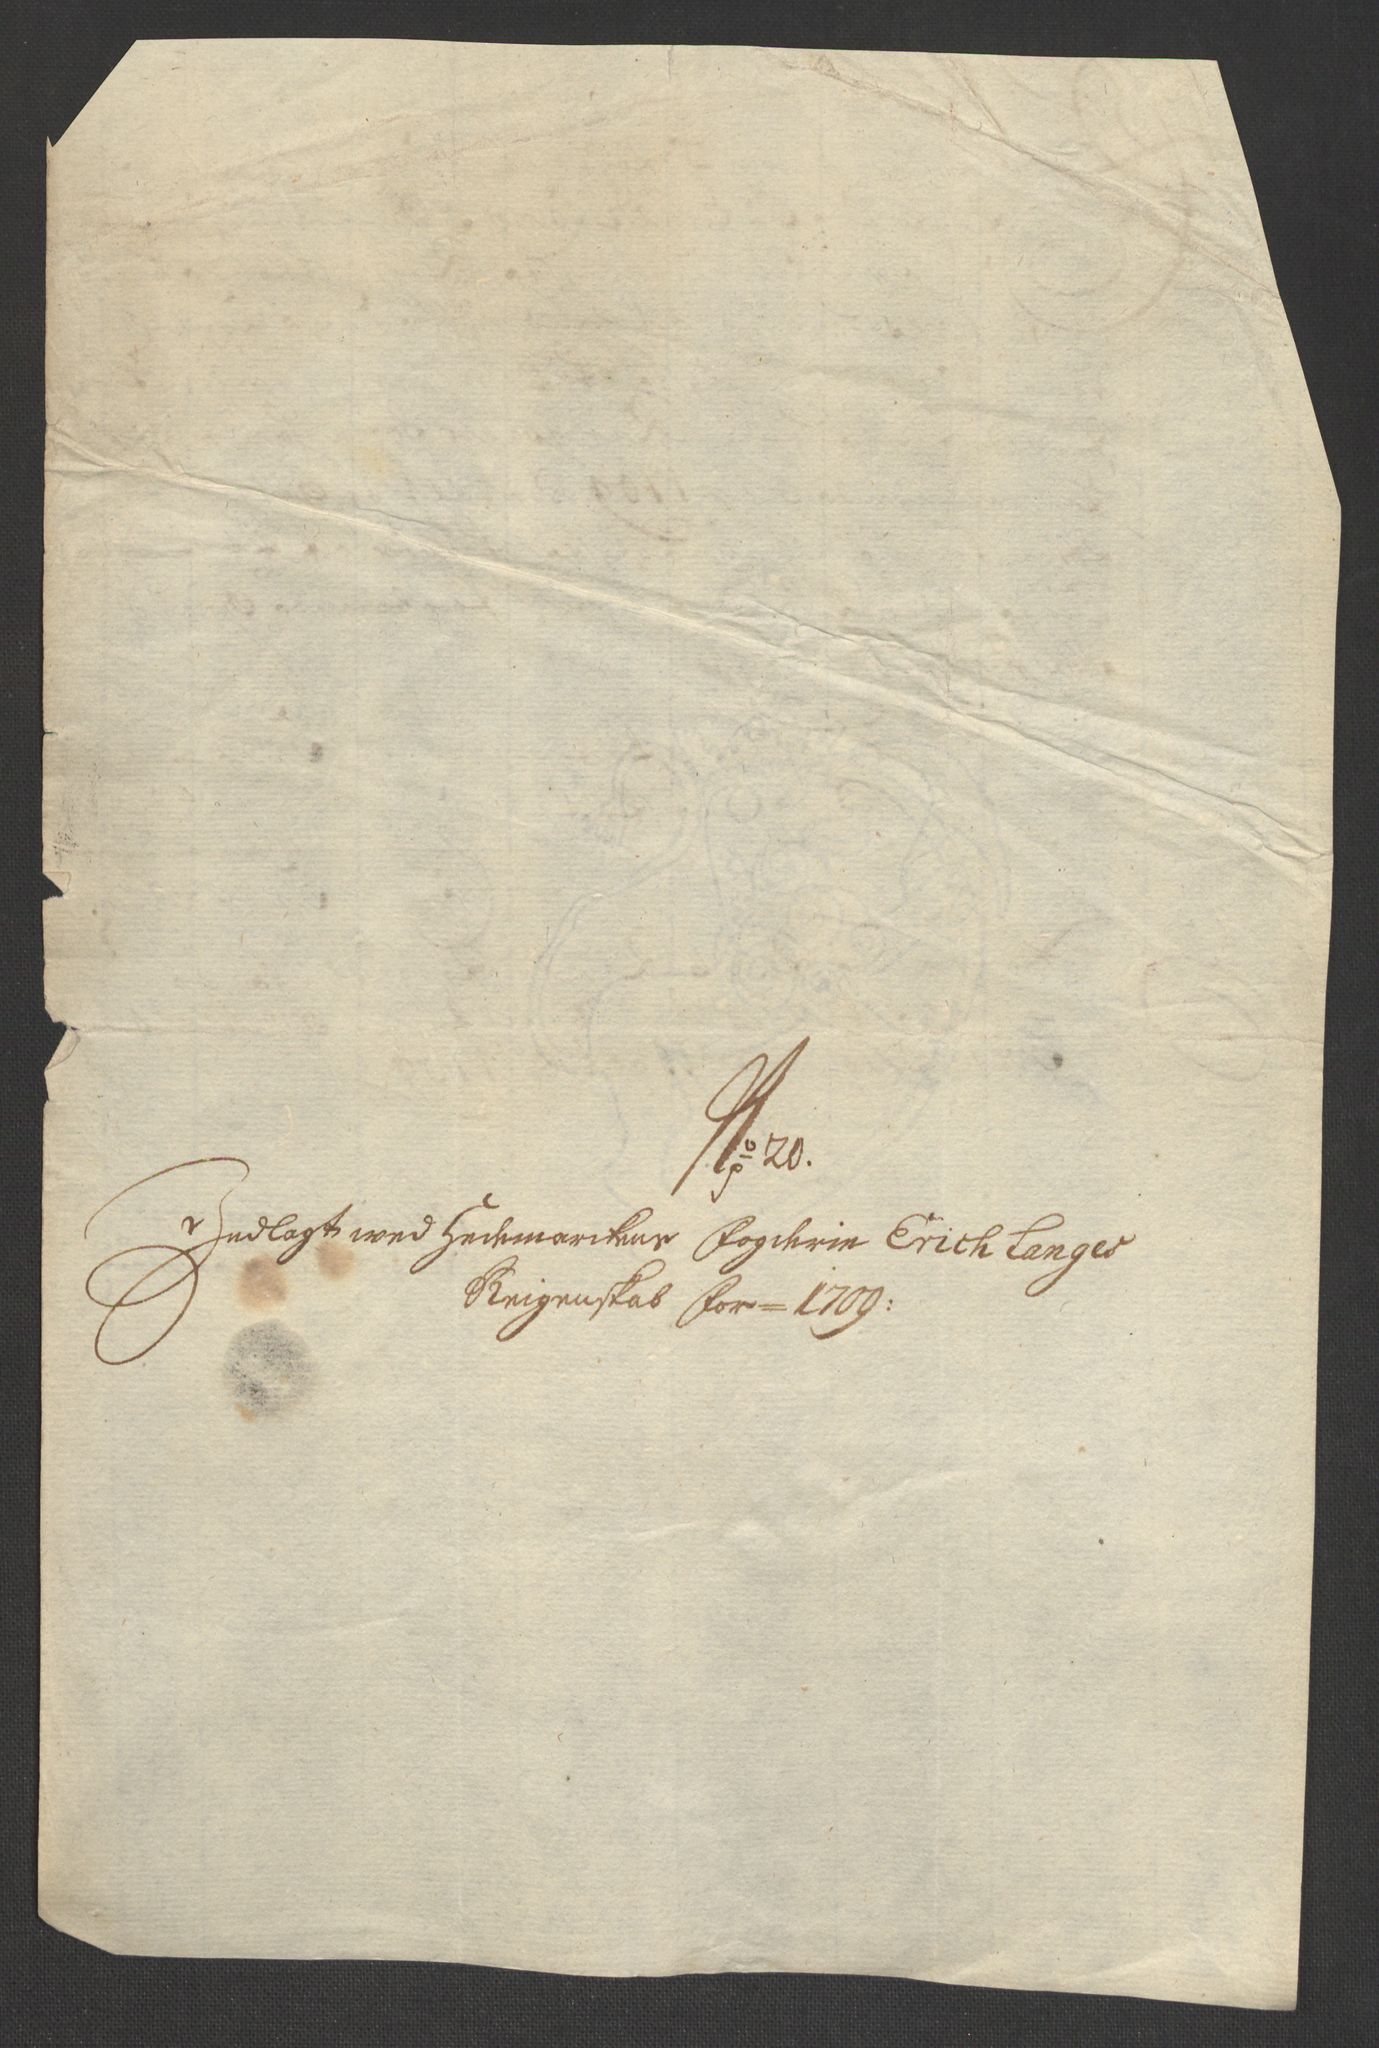 No 20.
Indlagt wed Hedemarckens Fogderie Erich Langes
Reigenskab for = 1709: